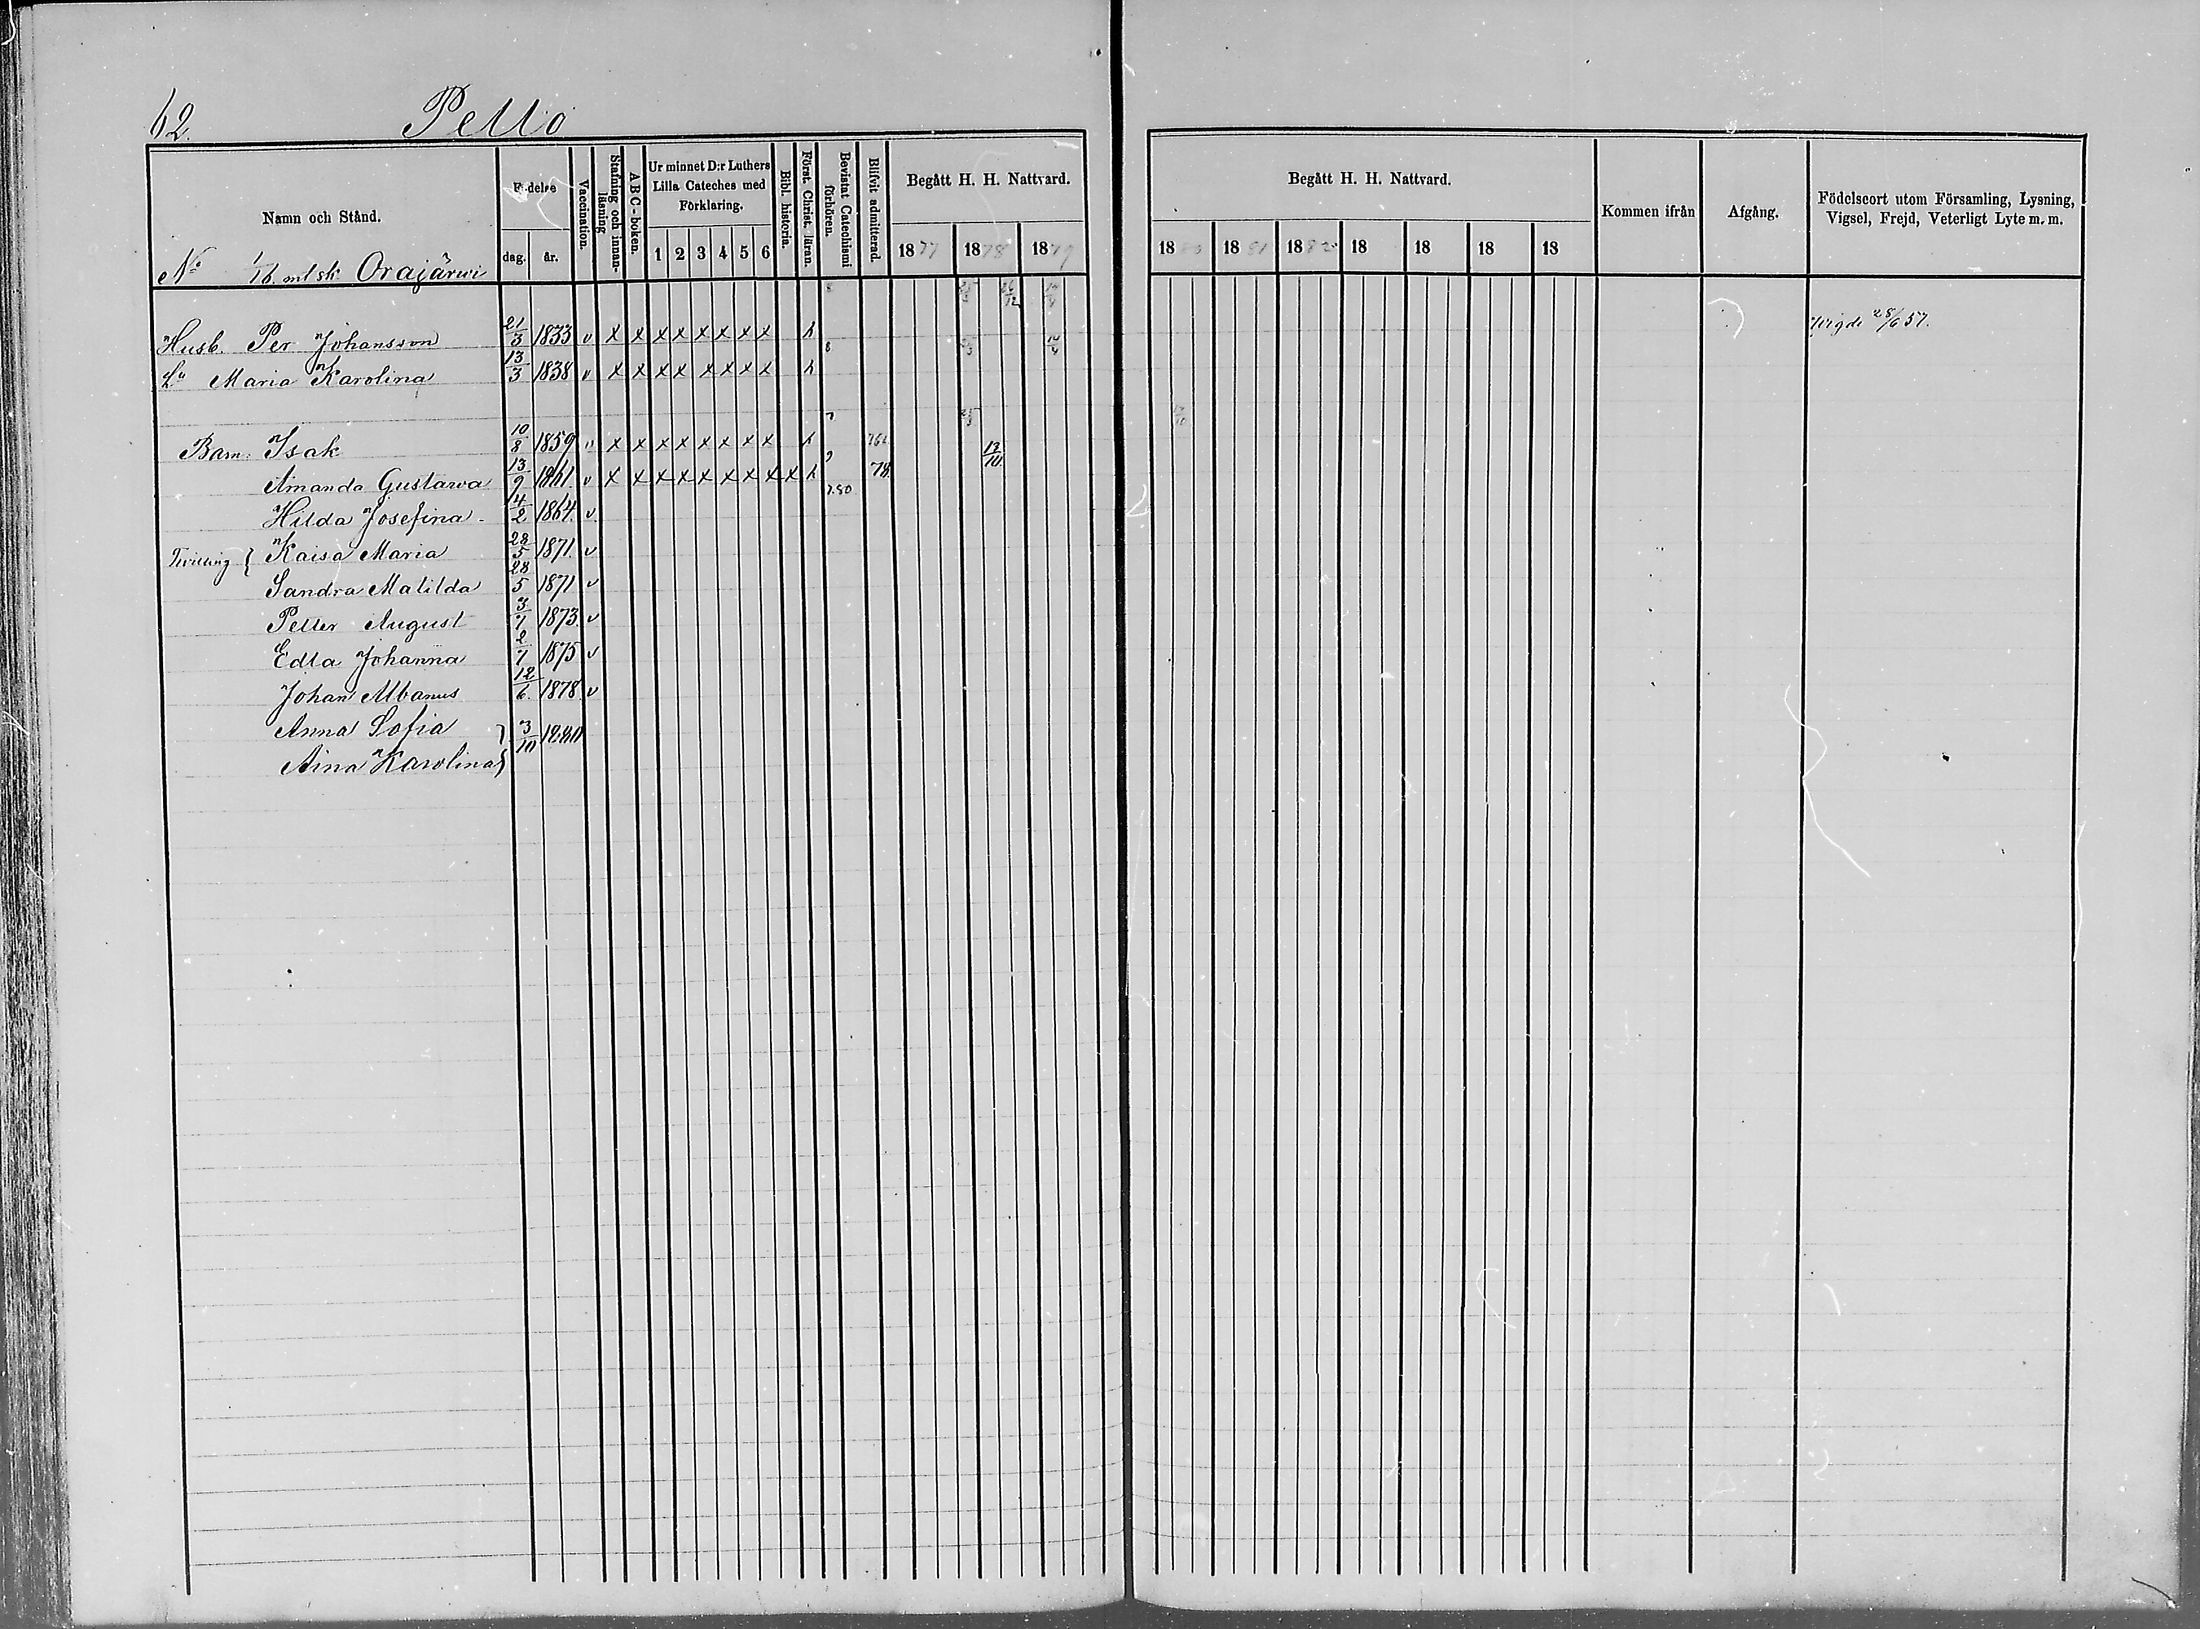 62. Pello
Namn och Stånd.
Födelse
dag. år.
Vaccination.
Stafning och innan-läsning
ABC-boken.
Ur minnet D:r Luthers
Lilla Cateches med
Förklaring.
1 2 3 4 5 6
Bibl. historia.
Först. Christ. läran.
Bevistat Catechismi förhören.
Blifvit admitterad.
Begått H. H. Nattvard.
1877 1878 1879
Begått H. H. Nattvard.
1880 1881 1882 18 18 18 18
Kommen ifrån
Afgång.
Födelseort utom Församling, Lysning,
Vigsel, Frejd, Veterligt Lyte m. m.
No 1/16 mtsk Orajärwi
Husb. Per Johansson 21/3 1833 v x x x x x x x x h 8 26/12 Vigde 28/6 57.
Maria Karolina 13/3 1838 v x x x x x x x x h 8
Barn: Isak 10/8 1859 v x x x x x x x x h 7
Amanda Gustawa 13/9 1861. v x x x x x x x x x h 9 78. 12/10
Hilda Josefina 14/2 1864. v
Tvilling { Kaisa Maria 28/5 1871. v
Sandra Matilda 28/5 1871 v
Petter August 3/7 1873. v
Edla Johanna 2/7 1875 v
Johan Albanus 12/6. 1878. v
Anna Sofia } 3/10 1880
Aina Karolina }